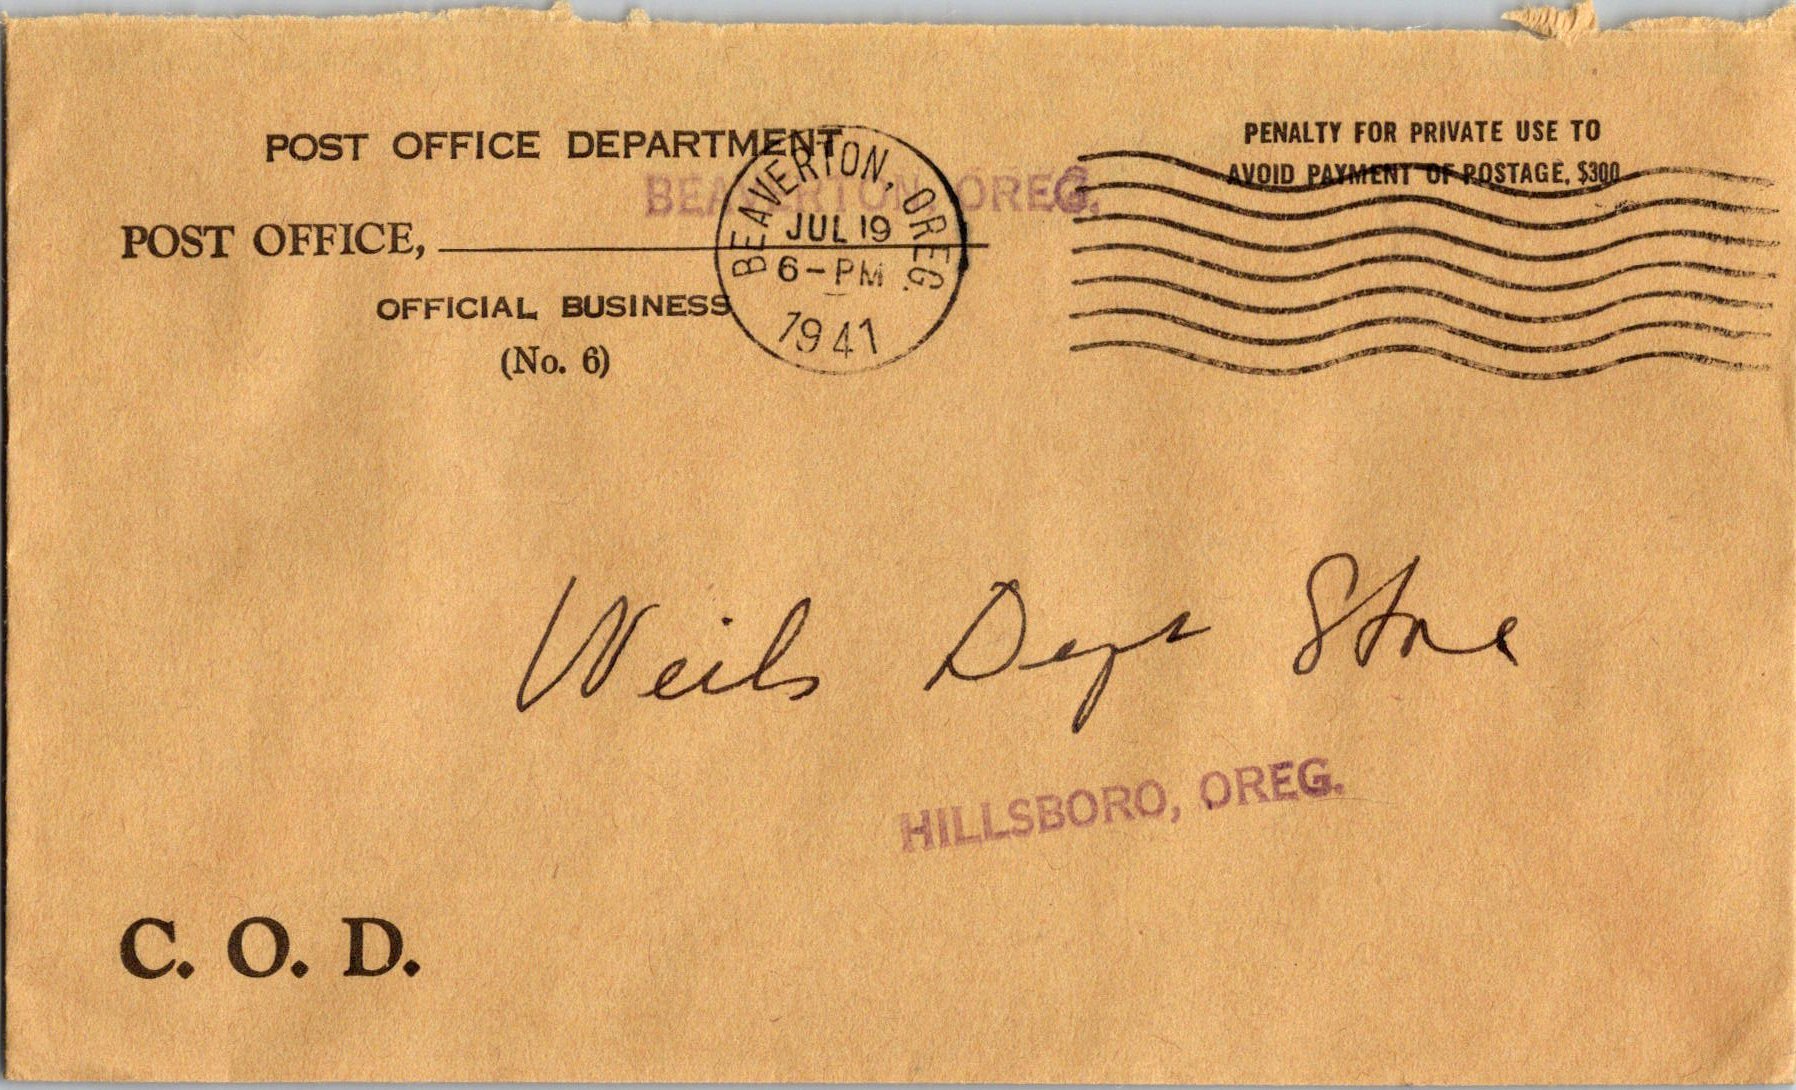 POST OFFICE DEPARTMENT
PENALTY FOR PRIVATE USE TO
AVOID PAYMENT OF POSTAGE, $300
BEAVERTON, OREG.
POST OFFICE,
BEAVERTON, OREG.
JUL 19
6-PM
1941
OFFICIAL BUSINESS
(No. 6)
Weils Dept Store
HILLSBORO, OREG.
C. O. D.